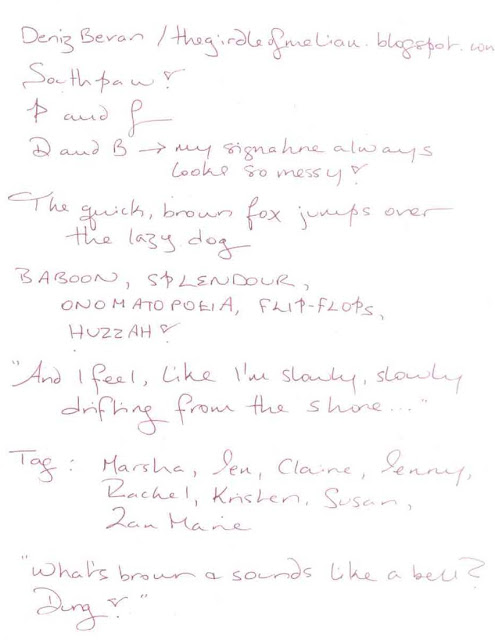 Deniz Bevan / thegirdleofmelian.blogspot.com
Southpaw!
P and f
D and B → my signature always
looks so messy!
The quick, brown fox jumps over
the lazy dog
BABOON, SPLENDOUR,
ONOMATOPOEIA, FLIP-FLOPS,
HUZZAH!
"And I feel, like I'm slowly, slowly
drifting from the shore..."
Tag: Marsha, Jen, Claire, Jenny,
Rachel, Kristen, Susan,
Zan Marie
"What's brown & sounds like a bell?
Dung!"